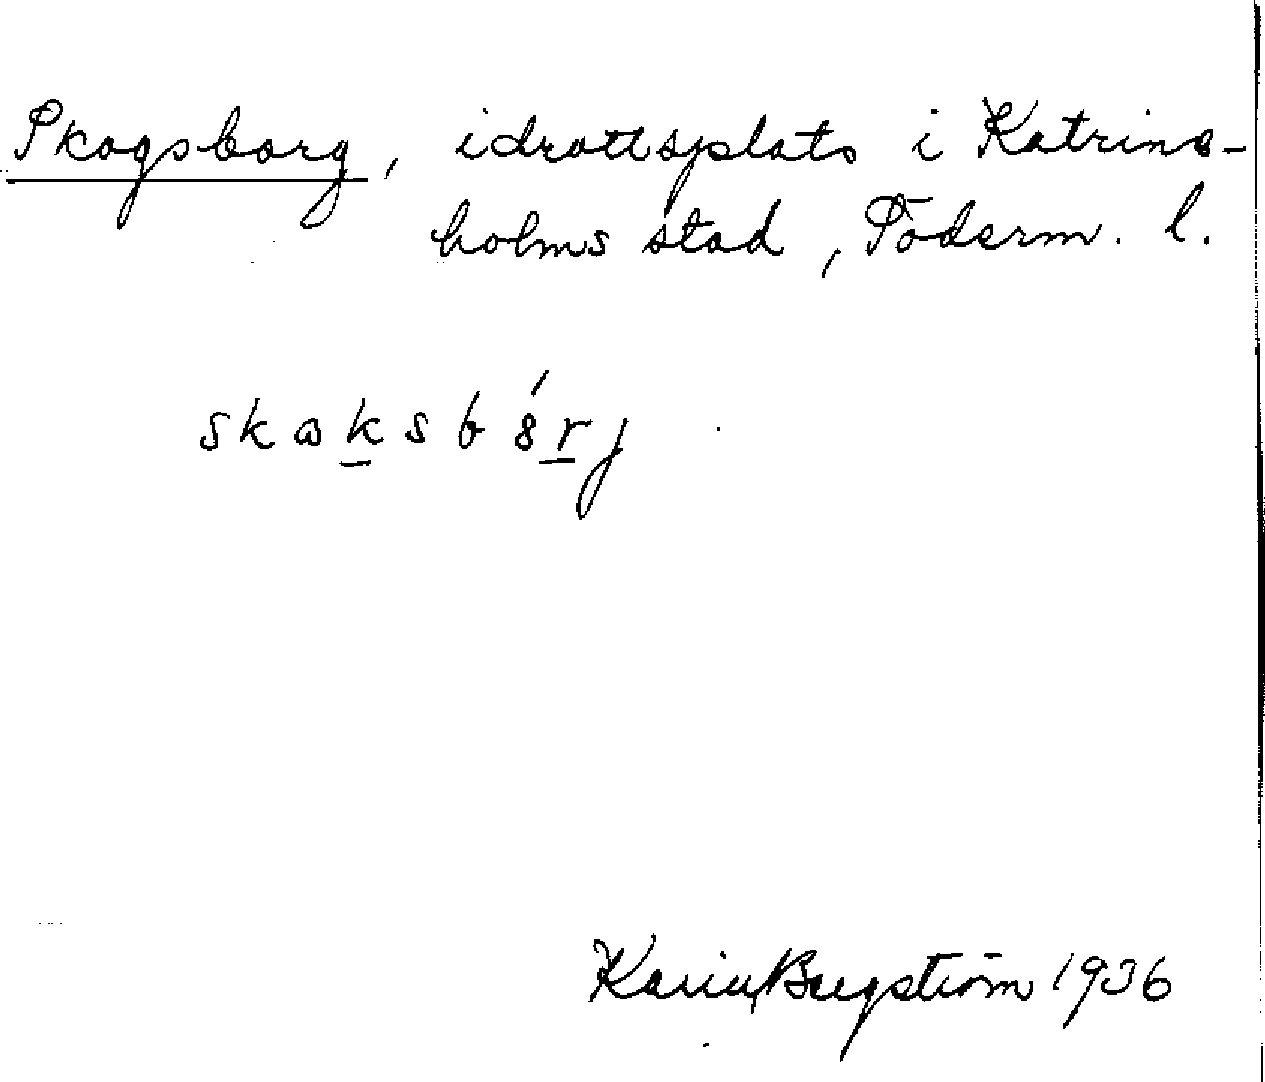 Skogsborg, idrottsplats i Katrine-
holms stad, Söderm. l.
skωksb8́rj
Karin Bergström 1936